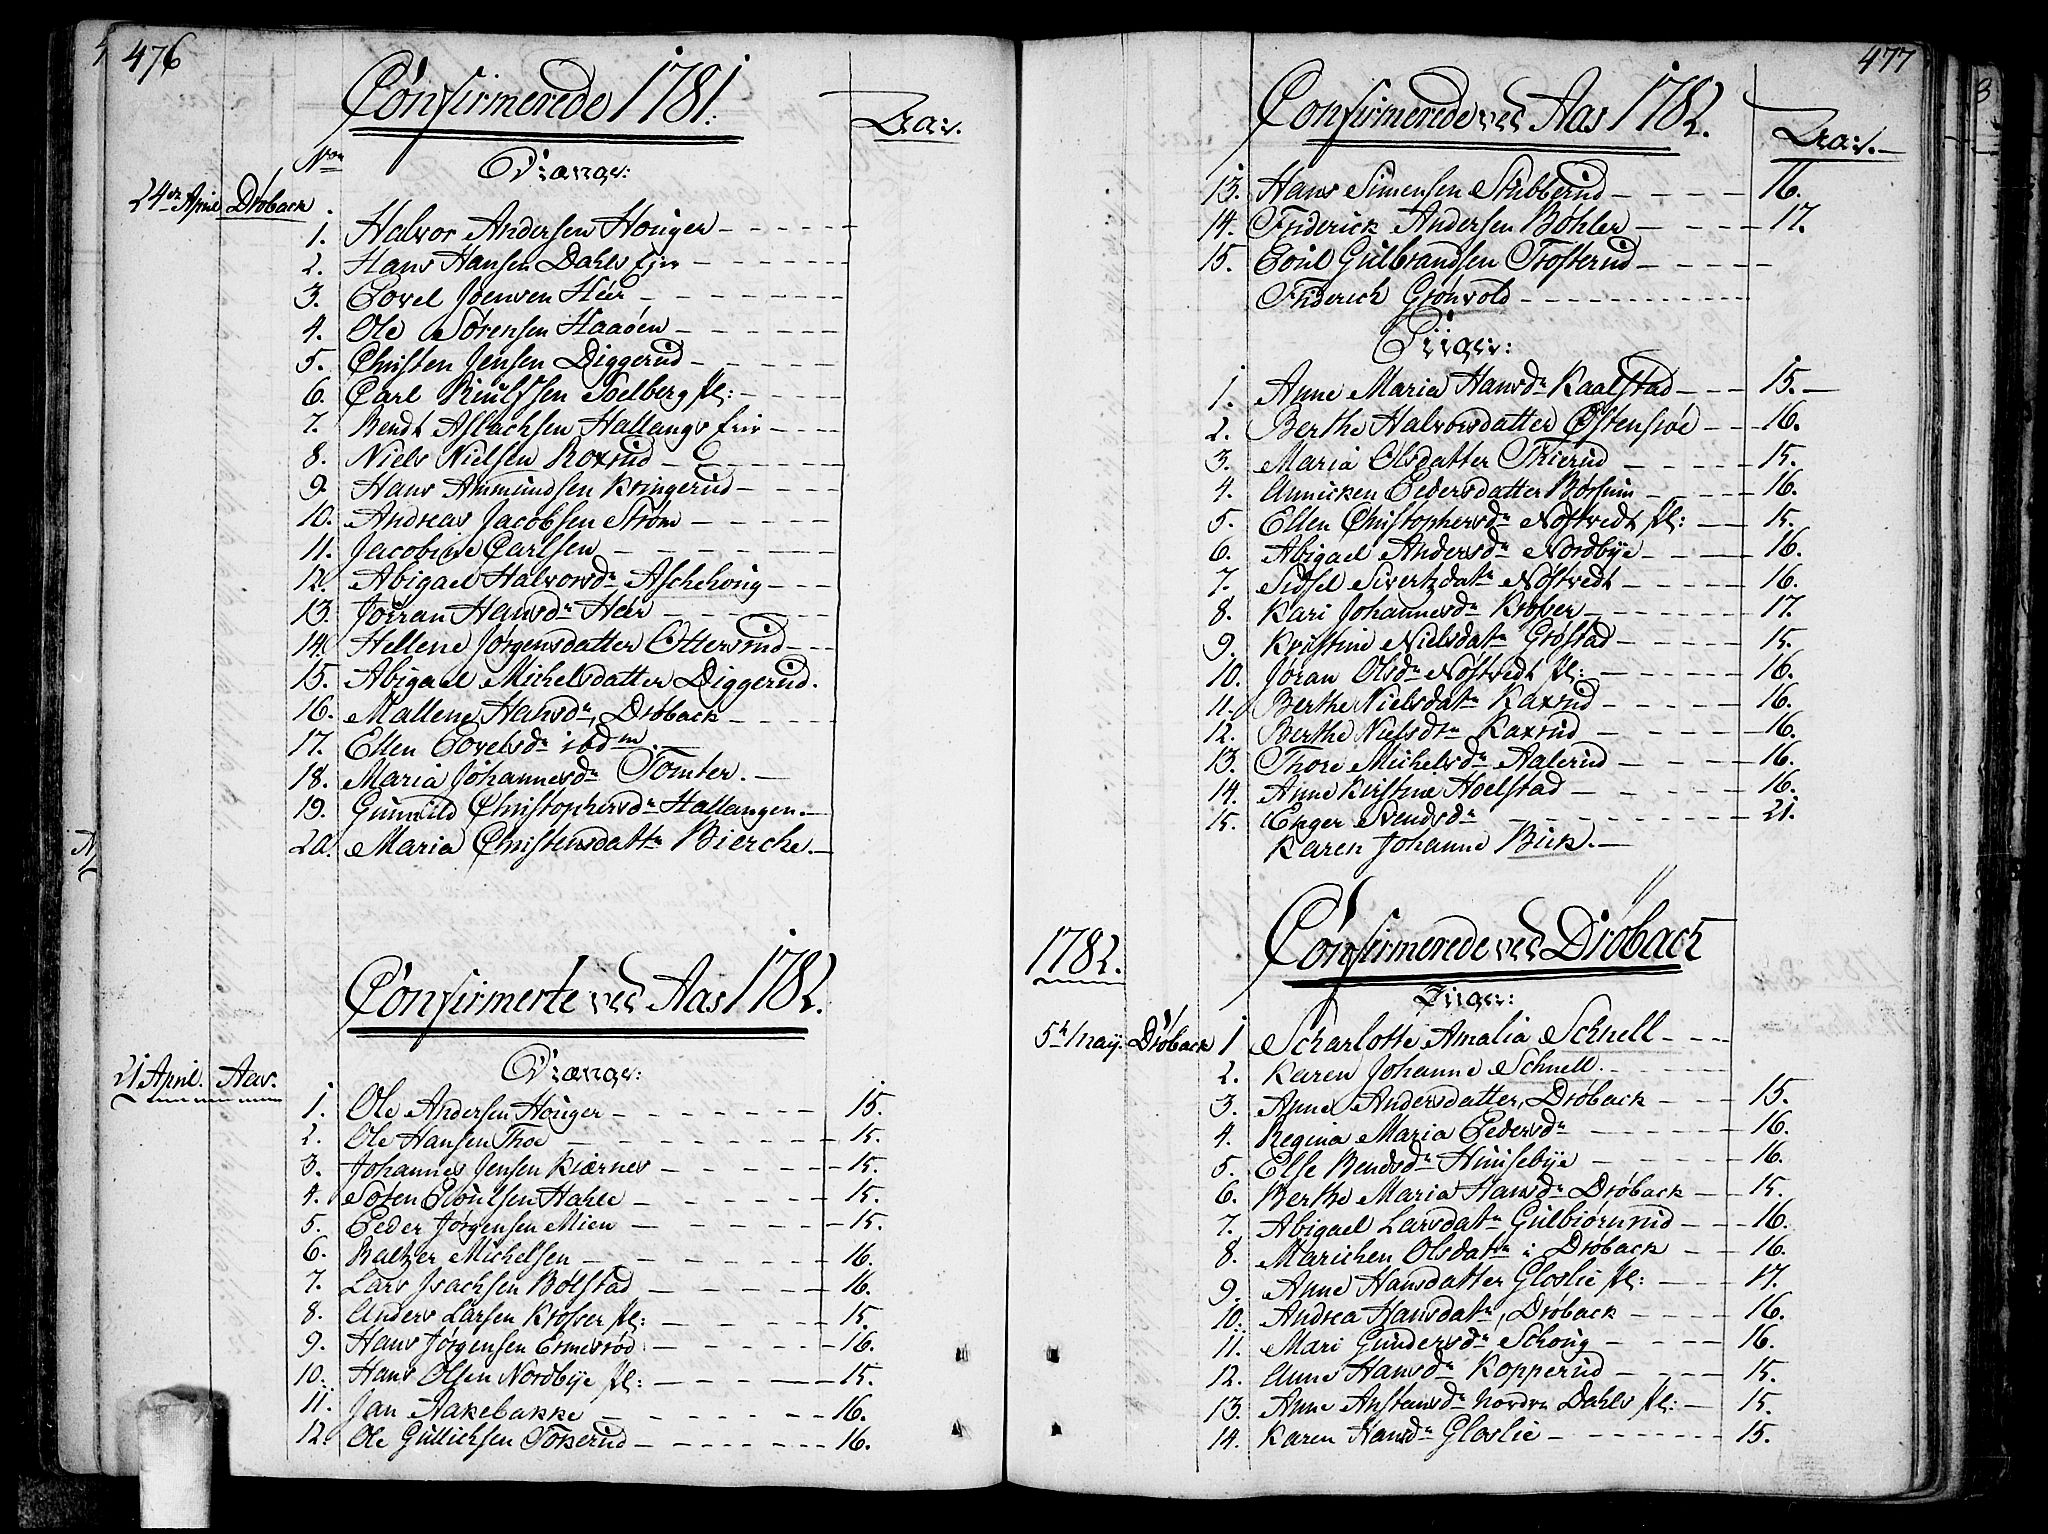 476
Confirmerede 1781.
Aar.
No
Drænge:
24de April Drøback
1. Halvor Andersen Houger
2. Hans Hansen Dahls Eie
3. Povel Joensen Heer
4. Ole Sørensen Haaøen
5. Christen Jensen Diggerud
6. Carl Knutssen Soelberg pl:
7. Bendt Aslachsen Hallangs Eie
8. Niels Nielsen Roxrud
9. Hans Ammundsen Kringerud
10. Andreas Jacobsen Strøm
11. Jacobine Carlsen
12. Abigael Halvorsdr Aschehoug
13. Jørran Hansdr Heer
14. Hellene Jørgensdatter Ottersrud
15. Abigael Michelsdatter Diggerud.
16. Mallene Hansdr, Drøback
17. Ellen Povelsdr ibdm
18. Maria Johannesdr Tomter.
19. Gunnild Christophersdr Hallangen.
20. Maria Christensdattr Bierche.
Confirmerte ved Aas 1782.
Drænge:
21 April. Aas.
1. Ole Andersen Houger 15.
2. Ole Hansen Thoe 15.
3. Johannes Jensen Kiærnes 15.
4. Søfen Poulsen Hahle 15.
5. Peder Jørgensen Mien 15.
6. Baltzer Michelsen 16.
7. Lars Isachsen Bølstad 16.
8. Anders Larsen Krosser pl: 15.
9. Hans Jørgensen Ermesrød 16.
10. Hans Olsen Nordbye pl: 15.
11. Jan Aakebakke 16.
12. Ole Gullichsen Toserud 16.
477
Confirmerede ved Aas 1782.
Aar.
13. Hans Simensen Stubberud 16.
14. Friderick Andersen Bøhler 17.
15. Poul Gulbrandsen Trosterud
Friderich Grønvold
Piiger:
1. Anne Maria Hansdr Kaalstad 15.
2. Berthe Halvorsdatter Østensiøe 16.
3. Maria Olsdatter Thierud 15.
4. Annicken Pedersdatter Børsum 16.
5. Ellen Christophersdr Nøstvedt pl: 15.
6. Abigael Andersdr Nordbye 16.
7. Sidsel Sivertzdatr Nøstvedt 16.
8. Kari Johannesdr Krober 17.
9. Kristine Nielsdatr Grøstad 15.
10. Jøran Olsdr Nøstvedt pl: 16.
11. Berthe Nielsdatr Kaxrud 16.
12. Berthe Nielsdtr Kaxrud 16.
13. Thore Michelsdr Aalerud 16.
14. Anne Kirstine Hoelstad 16.
15. Enger Svendsdr 21.
Karen Johanne Bick.
1782.
Confirmerede ved Drøbach
Piiger:
5te May. Drøback
1 Scharlotte Amalia Schnell
2. Karen Johanne Schnell.
3. Anne Andersdatter, Drøback 15.
4. Regina Maria Pedersdr 16.
5. Else Bendsdr Huusebye 16.
6. Berthe Maria Hansdr Drøback 15.
7. Abigael Larsdatr Gulbiørnrud 16.
8. Marichen Olsdatr i Drøback 16.
9. Anne Hansdatter Gloslie pl: 17.
10. Andrea Hansdatr, Drøback 16.
11. Mari Gundersdr Schoug 16.
12. Anne Hansdr Kopperud 15.
13. Anne Anstensdr Nordre Dahls pl: 15.
14. Karen Hansdr Gloslie 15.